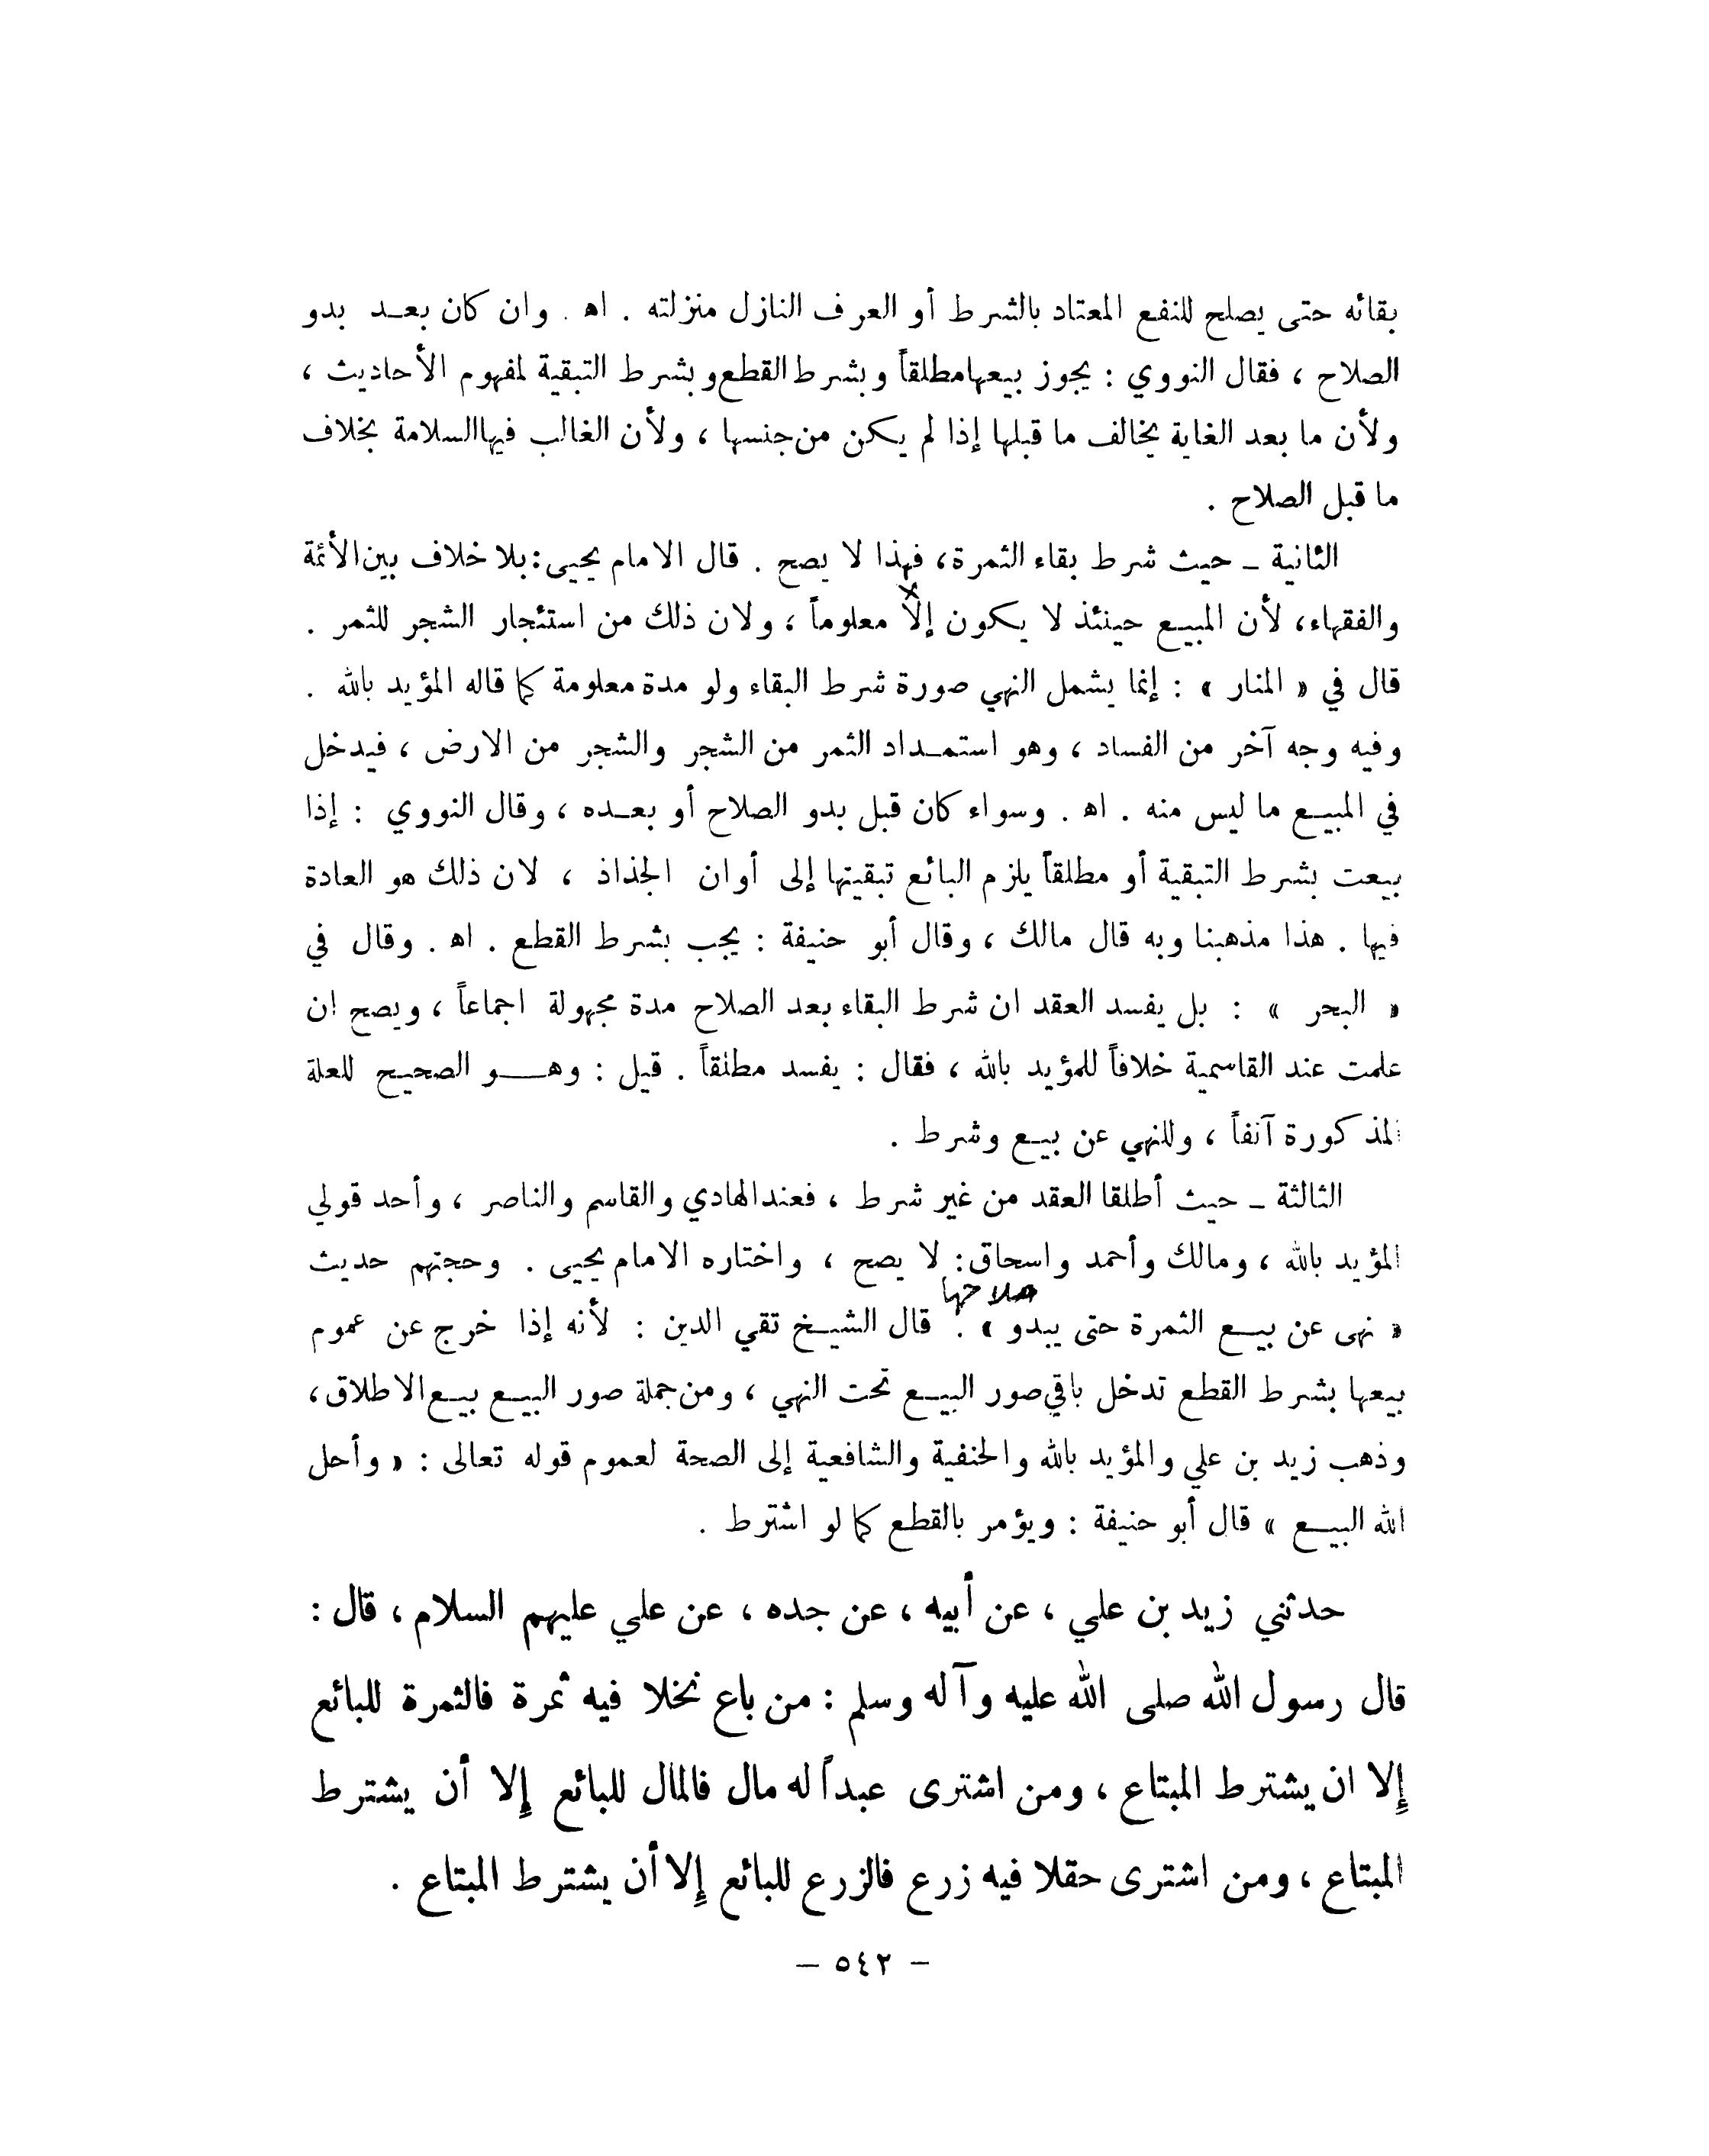 بقائه حتى يصلح للنفع المعتاد بالشرط أو العرف النازل منزلته . اه . وان كان بعد بدو
الصلاح ، فقال النووي : يجوز بيعها مطلقاً وبشرط القطع وبشرط التبقية لمفهوم الأحاديث ،
ولأن ما بعد الغاية يخالف ما قبلها إذا لم يكن من جنسها ، ولأن الغالب فيها السلامة بخلاف
ما قبل الصلاح .
الثانية – حيث شرط بقاء الثمرة، فهذا لا يصح . قال الامام يحيى: بلا خلاف بين الأئمة
والفقهاء، لأن المبيع حينئذ لا يكون إلا معلوماً ، ولان ذلك من استئجار الشجر للثمر .
قال في « المنار » : إنما يشمل النهي صورة شرط البقاء ولو مدة معلومة كما قاله المؤيد بالله .
وفيه وجه آخر من الفساد ، وهو استمداد الثمر من الشجر والشجر من الارض ، فيدخل
في المبيع ما ليس منه . اه . وسواء كان قبل بدو الصلاح أو بعده ، وقال النووي : إذا
بيعت بشرط التبقية أو مطلقاً يلزم البائع تبقيتها إلى أوان الجذاذ ، لان ذلك هو العادة
فيها . هذا مذهبنا وبه قال مالك ، وقال أبو حنيفة : يجب بشرط القطع . اه . وقال في
« البحر » : بل يفسد العقد ان شرط البقاء بعد الصلاح مدة مجهولة اجماعاً ، ويصح ان
علمت عند القاسمية خلافاً للمؤيد بالله ، فقال : يفسد مطلقاً . قيل : وهو الصحيح للعلة
المذكورة آنفاً ، وللنهي عن بيع وشرط .
الثالثة – حيث أطلقا العقد من غير شرط ، فعند الهادي والقاسم والناصر ، وأحد قولي
المؤيد بالله ، ومالك وأحمد واسحاق: لا يصح ، واختاره الامام يحيى . وحجتهم حديث
صلاحها
« نهى عن بيع الثمرة حتى يبدو » . قال الشيخ تقي الدين : لأنه إذا خرج عن عموم
بيعها بشرط القطع تدخل باقي صور البيع تحت النهي ، ومن جملة صور البيع بيع الاطلاق،
وذهب زيد بن علي والمؤيد بالله والحنفية والشافعية إلى الصحة لعموم قوله تعالى : « وأحل
الله البيع » قال أبو حنيفة : ويؤمر بالقطع كما لو اشترط .
حدثني زيد بن علي ، عن أبيه ، عن جده ، عن علي عليهم السلام ، قال :
قال رسول الله صلى الله عليه وآله وسلم : من باع نخلا فيه ثمرة فالثمرة للبائع
إلا ان يشترط المبتاع ، ومن اشترى عبداً له مال فالمال للبائع إلا أن يشترط
المبتاع ، ومن اشترى حقلا فيه زرع فالزرع للبائع إلا أن يشترط المبتاع .
– ٥٤٢ –